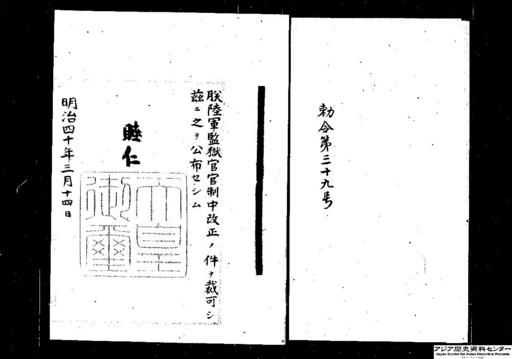 勅令第三十九号
朕陸軍監獄官官制中改正ノ件ヲ裁可シ
茲ニ之ヲ公布セシム
睦仁
天皇
御璽
明治四十年三月十四日
アジア歴史資料センター
Japan Center for Asian Historical Records